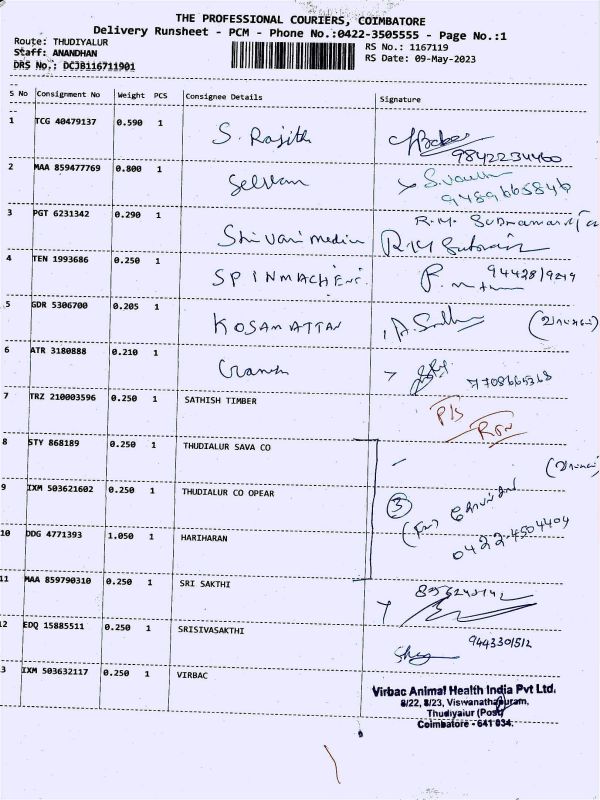 THE PROFESSIONAL COURIERS, COIMBATORE
Delivery Runsheet - PCM - Phone No.:0422-3505555 - Page No.:1
Route: THUDIYALUR
RS No.: 1167119
Staff: ANANDHAN
RS Date: 09-May-2023
DRS No.: DCJB116711901
S No Consignment No Weight PCS Consignee Details Signature
1 TCG 40479137 0.590 1 S. Rajith
9842234460
2 MAA 859477769 0.800 1 Selvam
9489665846
3 PGT 6231342 0.290 1 Shivani
4 TEN 1993686 0.250 1 SPINMACHENI
5 GDR 5306700 0.205 1 KOSAMATTAM
6 ATR 3180888 0.210 1
7708665368
7 TRZ 210003596 0.250 1 SATHISH TIMBER
8 STY 868189 0.250 1 THUDIALUR SAVA CO
9 IXM 503621602 0.250 1 THUDIALUR CO OPEAR
3
10 DDG 4771393 1.050 1 HARIHARAN
0422-4504404
11 MAA 859790310 0.250 1 SRI SAKTHI
12 EDQ 15885511 0.250 1 SRISIVASAKTHI
9443301512
3 IXM 503632117 0.250 1 VIRBAC
Virbac Animal Health India Pvt Ltd.
8/22, 8/23, Viswanathapuram,
Thudiyalur (Post)
Coimbatore - 641 034.